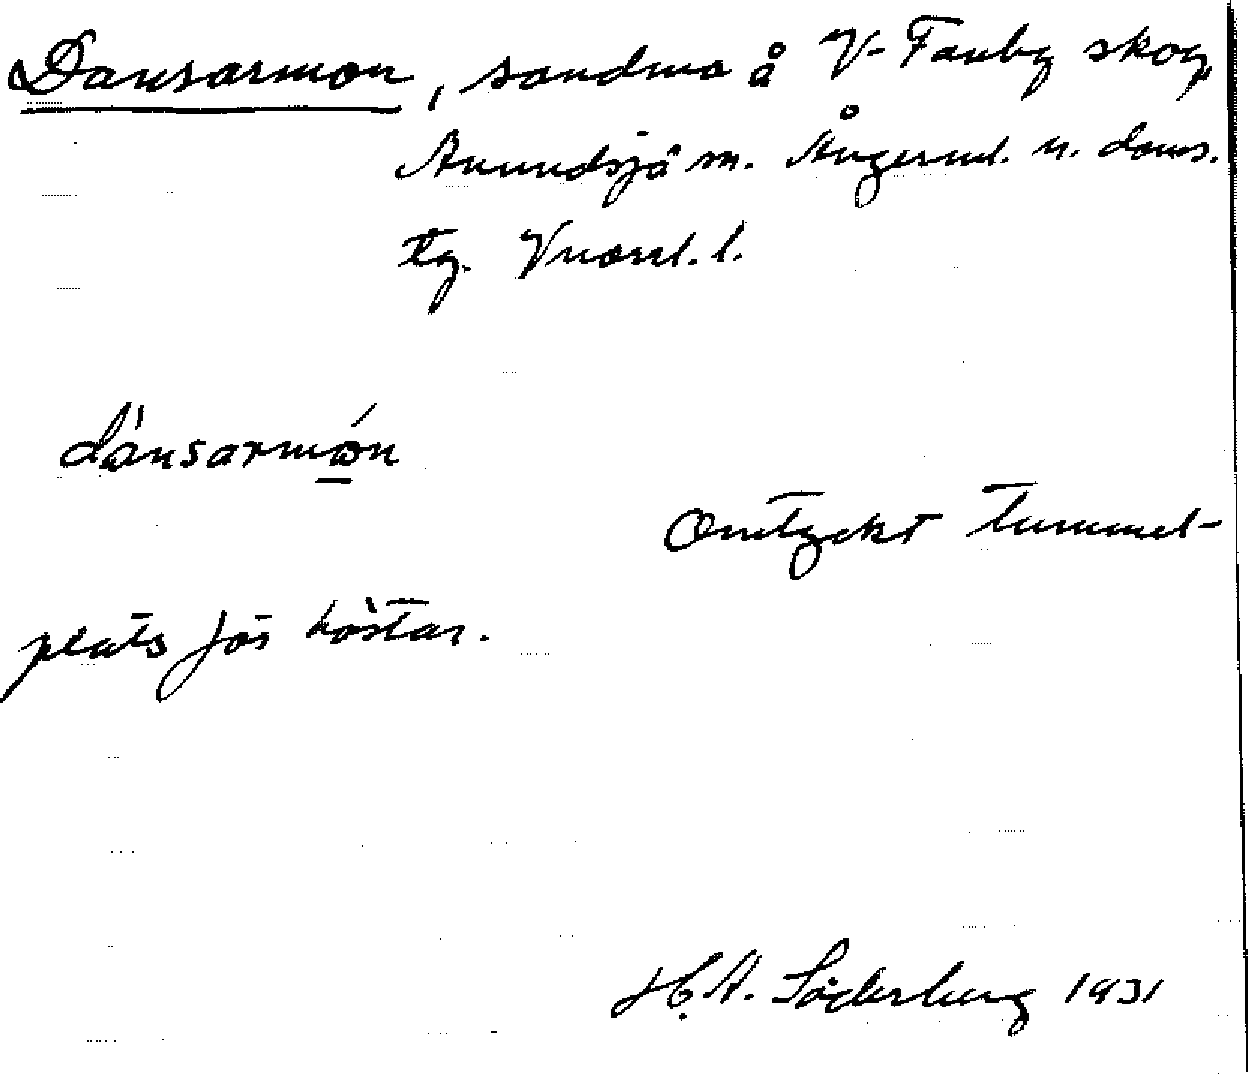 Dansarmon, sandmo å V-Fanby skog
Anundsjö sn. Ångerml. n. doms.
tg. Vnorrl. l.
dánsarmón
Omtyckt tummel-
plats för hästar.
H. A. Söderberg 1931